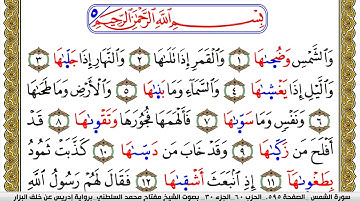 ٥ بِسْمِ اللَّهِ الرَّحْمَٰنِ الرَّحِيمِ
وَالشَّمْسِ وَضُحَىٰهَا ١ وَالْقَمَرِ إِذَا تَلَىٰهَا ٢ وَالنَّهَارِ إِذَا جَلَّىٰهَا ٣
وَالَّيْلِ إِذَا يَغْشَىٰهَا ٤ وَالسَّمَآءِ وَمَا بَنَىٰهَا ٥ وَالْأَرْضِ وَمَا طَحَىٰهَا
٦ وَنَفْسٍ وَمَا سَوَّىٰهَا ٧ فَأَلْهَمَهَا فُجُورَهَا وَتَقْوَىٰهَا ٨ قَدْ
أَفْلَحَ مَن زَكَّىٰهَا ٩ وَقَدْ خَابَ مَن دَسَّىٰهَا ١٠ كَذَّبَتْ ثَمُودُ
بِطَغْوَىٰهَا ١١ إِذِ انۢبَعَثَ أَشْقَىٰهَا ١٢ فَقَالَ لَهُمْ رَسُولُ اللَّهِ
سورة الشمس الصفحة ٥٩٥ الحزب ٦٠ الجزء ٣٠ بصوت الشيخ مفتاح محمد السلطني برواية إدريس عن خلف البزار